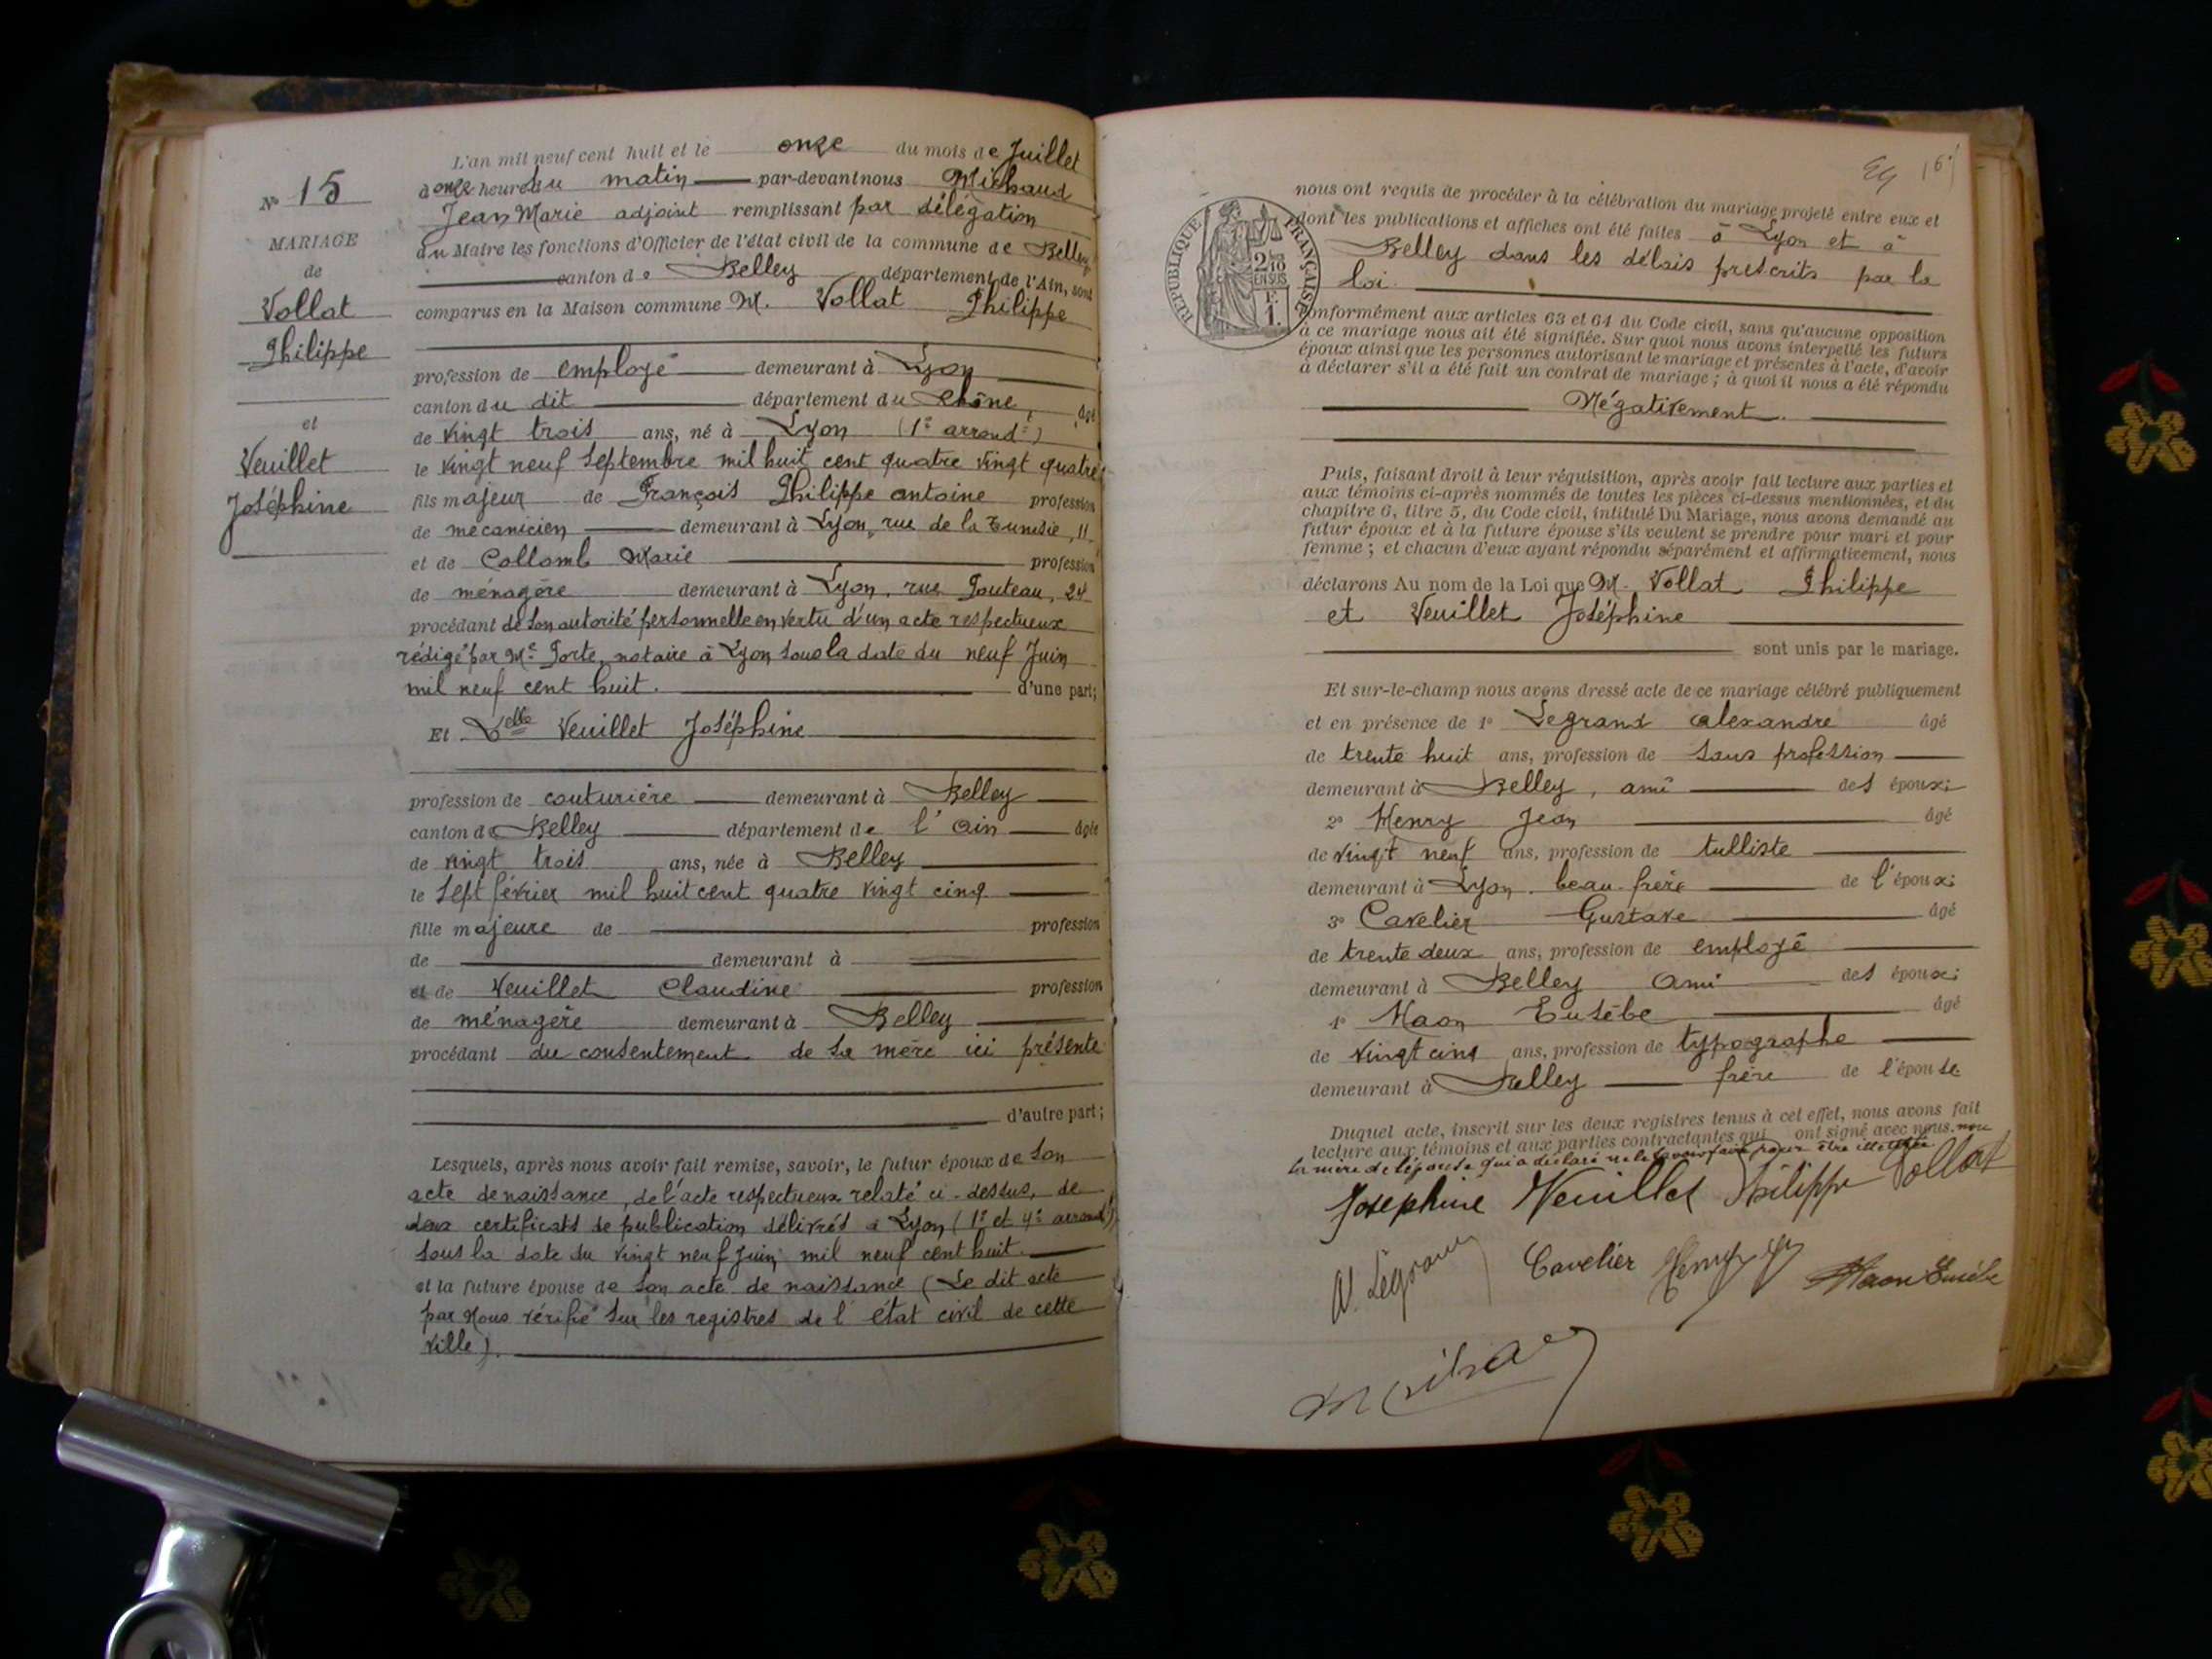 N° 15
MARIAGE
de
Vollat
Philippe
et
Veuillet
Joséphine
L'an mil neuf cent huit et le onze du mois de Juillet
à onze heures du matin par-devant nous Michaud
Jean Marie adjoint remplissant par délégation
du Maire les fonctions d'Officier de l'état civil de la commune de Belley
canton de Belley département de l'Ain, sont
comparus en la Maison commune M. Vollat Philippe
profession de employé demeurant à Lyon
canton du dit département du Rhône, âgé
de vingt trois ans, né à Lyon (1er arrondt)
le vingt neuf Septembre mil huit cent quatre vingt quatre
fils majeur de François Philippe antoine profession
de mécanicien demeurant à Lyon, rue de la Tunisie, 11
et de Collomb Marie profession
de ménagère demeurant à Lyon, rue Pouteau, 24
procédant de son autorité personnelle en vertu d'un acte respectueux
rédigé par Me Porte, notaire à Lyon sous la date du neuf Juin
mil neuf cent huit. d'une part;
Et Delle Veuillet Joséphine
profession de couturière demeurant à Belley
canton de Belley département de l'Ain âgée
de vingt trois ans, née à Belley
le sept février mil huit cent quatre vingt cinq
fille majeure de profession
de demeurant à
et de Veuillet Claudine profession
de ménagère demeurant à Belley
procédant du consentement de sa mère ici présente
d'autre part;
Lesquels, après nous avoir fait remise, savoir, le futur époux de son
acte de naissance, de l'acte respectueux relaté ci-dessus, de
deux certificats de publication délivrés à Lyon (1er et 4e arrondt)
sous la date du vingt neuf Juin mil neuf cent huit.
et la future épouse de son acte de naissance (Le dit acte
par Nous vérifié sur les registres de l'état civil de cette
ville).
nous ont requis de procéder à la célébration du mariage projeté entre eux et
dont les publications et affiches ont été faites à Lyon et à
Belley dans les délais prescrits par la
loi.
RÉPUBLIQUE FRANÇAISE
2/10
EN SUS
F.
1.
conformément aux articles 63 et 64 du Code civil, sans qu'aucune opposition
à ce mariage nous ait été signifiée. Sur quoi nous avons interpellé les futurs
époux ainsi que les personnes autorisant le mariage et présentes à l'acte, d'avoir
à déclarer s'il a été fait un contrat de mariage; à quoi il nous a été répondu
Négativement.
Puis, faisant droit à leur réquisition, après avoir fait lecture aux parties et
aux témoins ci-après nommés de toutes les pièces ci-dessus mentionnées, et du
chapitre 6, titre 5, du Code civil, intitulé Du Mariage, nous avons demandé au
futur époux et à la future épouse s'ils veulent se prendre pour mari et pour
femme; et chacun d'eux ayant répondu séparément et affirmativement, nous
déclarons Au nom de la Loi que M. Vollat Philippe
et Veuillet Joséphine
sont unis par le mariage.
Et sur-le-champ nous avons dressé acte de ce mariage célébré publiquement
et en présence de 1° Legrand alexandre âgé
de trente huit ans, profession de sans profession
demeurant à Belley, ami des époux;
2° Henry Jean âgé
de vingt neuf ans, profession de tulliste
demeurant à Lyon. beau-frère de l'époux;
3° Cavelier Gustave âgé
de trente deux ans, profession de employé
demeurant à Belley ami des époux;
4° Maon Eusèbe âgé
de vingt cinq ans, profession de typographe
demeurant à Belley frère de l'épouse
Duquel acte, inscrit sur les deux registres tenus à cet effet, nous avons fait
lecture aux témoins et aux parties contractantes qui ont signé avec nous. non
la mère de l'épouse qui a déclaré ne le savoir faire pour être illettrée
Josephine Veuillet Philippe Vollat
Al. Legrand Cavelier Henry Maon Eusèbe
Michaud